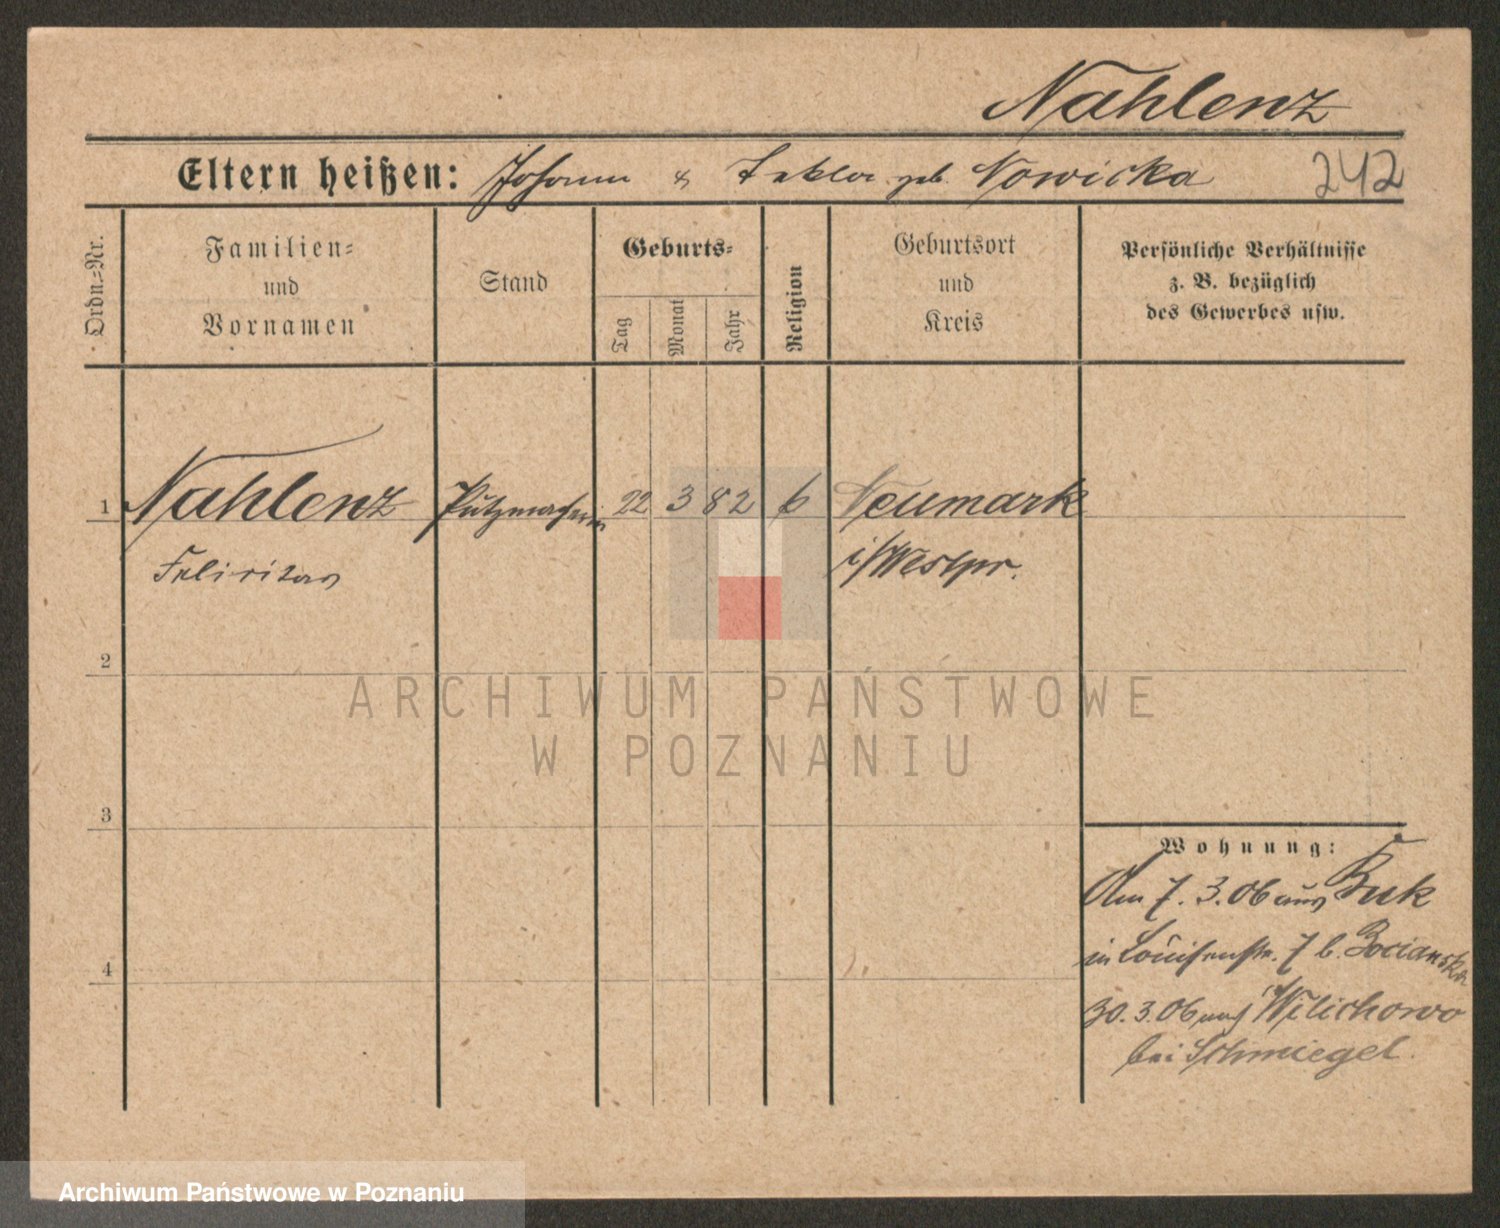 Nahlenz
Eltern heißen: Johann & Tekla geb. Nowicka 242
Ordn.=Nr.
Familien=
und
Vornamen
Stand
Geburts=
Tag
Monat
Jahr
Religion
Geburtsort
und
Kreis
Persönliche Verhältnisse
z. B. bezüglich
des Gewerbes usw.
1 Nahlenz Putzmacherin 22 3 82 k Neumark
Felicitas i/Westpr.
2
ARCHIWUM PAŃSTWOWE
W POZNANIU
3
Wohnung:
Am 7. 3. 06 aus Buk
in Louisenstr. 7 b. Bocianska
4
30. 3. 06 nach Wilichowo
bei Schmiegel.
Archiwum Państwowe w Poznaniu